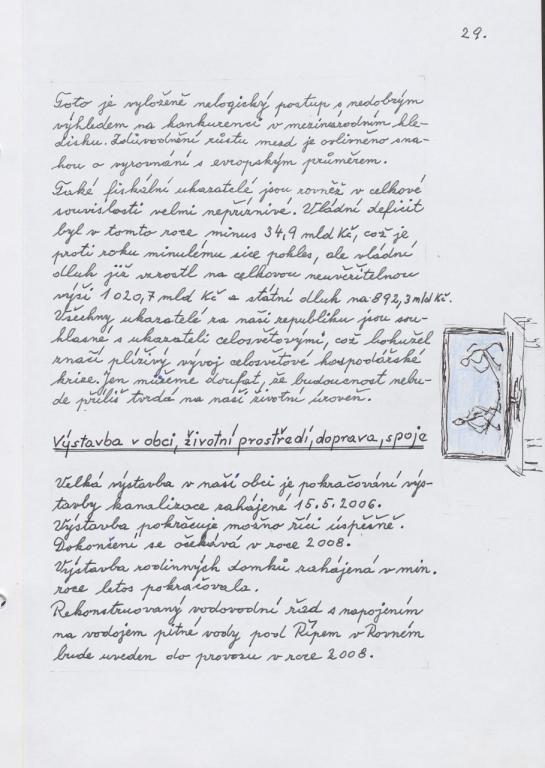 29.
Toto je vyloženě nelogický postup s nedobrým
výhledem na konkurenci v mezinárodním hle-
disku. Zdůvodnění růstu mezd je ovlivněno sna-
hou o vyrovnání s evropským průměrem.
Také fiskální ukazatelé jsou rovněž v celkové
souvislosti velmi nepříznivé. Vládní deficit
byl v tomto roce minus 34,9 mld Kč, což je
proti roku minulému sice pokles, ale vládní
dluh již vzrostl na celkovou neuvěřitelnou
výši 1 020,7 mld Kč a státní dluh na 892,3 mld Kč.
Všechny ukazatelé za naši republiku jsou sou-
hlasné s ukazateli celosvětovými, což bohužel
značí plíživý vývoj celosvětové hospodářské
krize. Jen můžeme doufat, že budoucnost nebu-
de příliš tvrdá na naší životní úroveň.
Výstavba v obci, životní prostředí, doprava, spoje
Velká výstavba v naší obci je pokračování výs-
tavby kanalizace zahájené 15.5.2006.
Výstavba pokračuje možno říci úspěšně.
Dokončení se očekává v roce 2008.
Výstavba rodinných domků zahájená v min.
roce letos pokračovala.
Rekonstruovaný vodovodní řad s napojením
na vodojem pitné vody pod Řípem v Rovném
bude uveden do provozu v roce 2008.